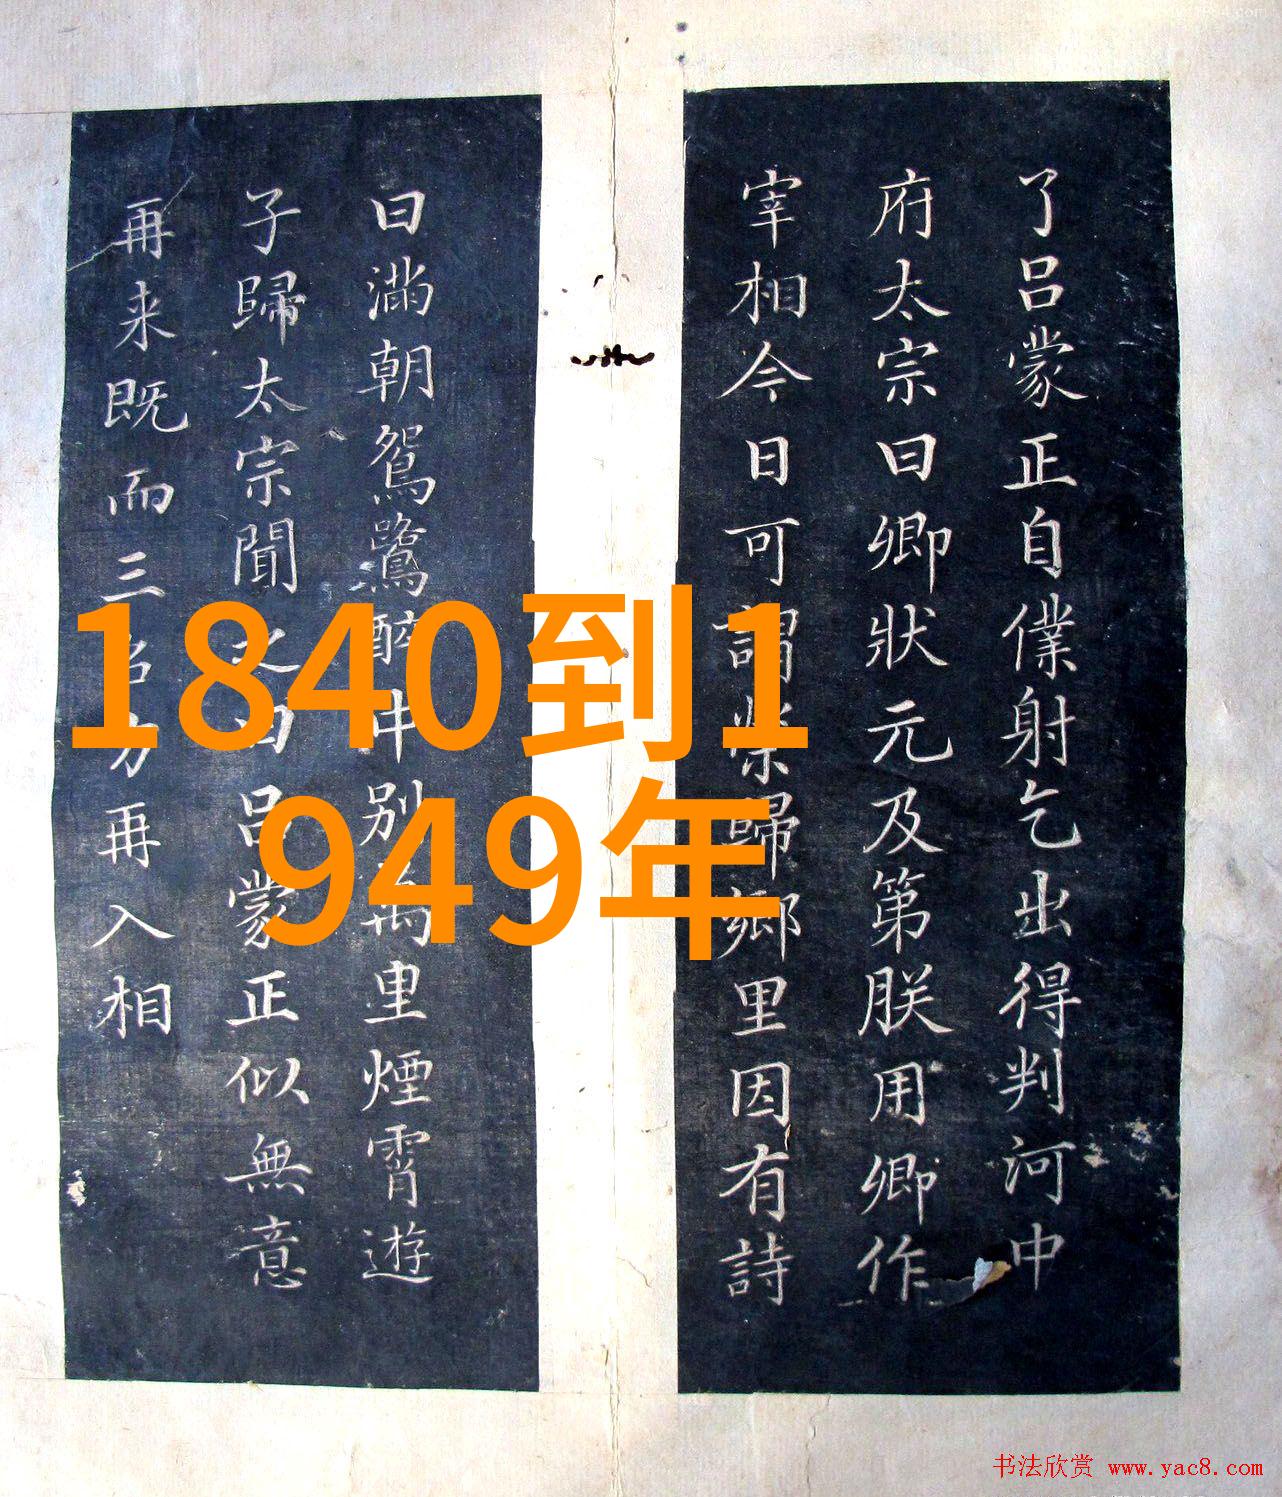 了呂蒙正自僕射乞出得判河中
府太宗曰卿狀元及第朕用卿作
宰相今日可謂榮歸鄉里因有詩
曰滿朝鴛鷺醉中別萬里煙霄遊
子歸太宗聞之曰呂蒙正似無意
再来既而三召方再入相
1840到1
949年
书法欣赏 www.yac8.com